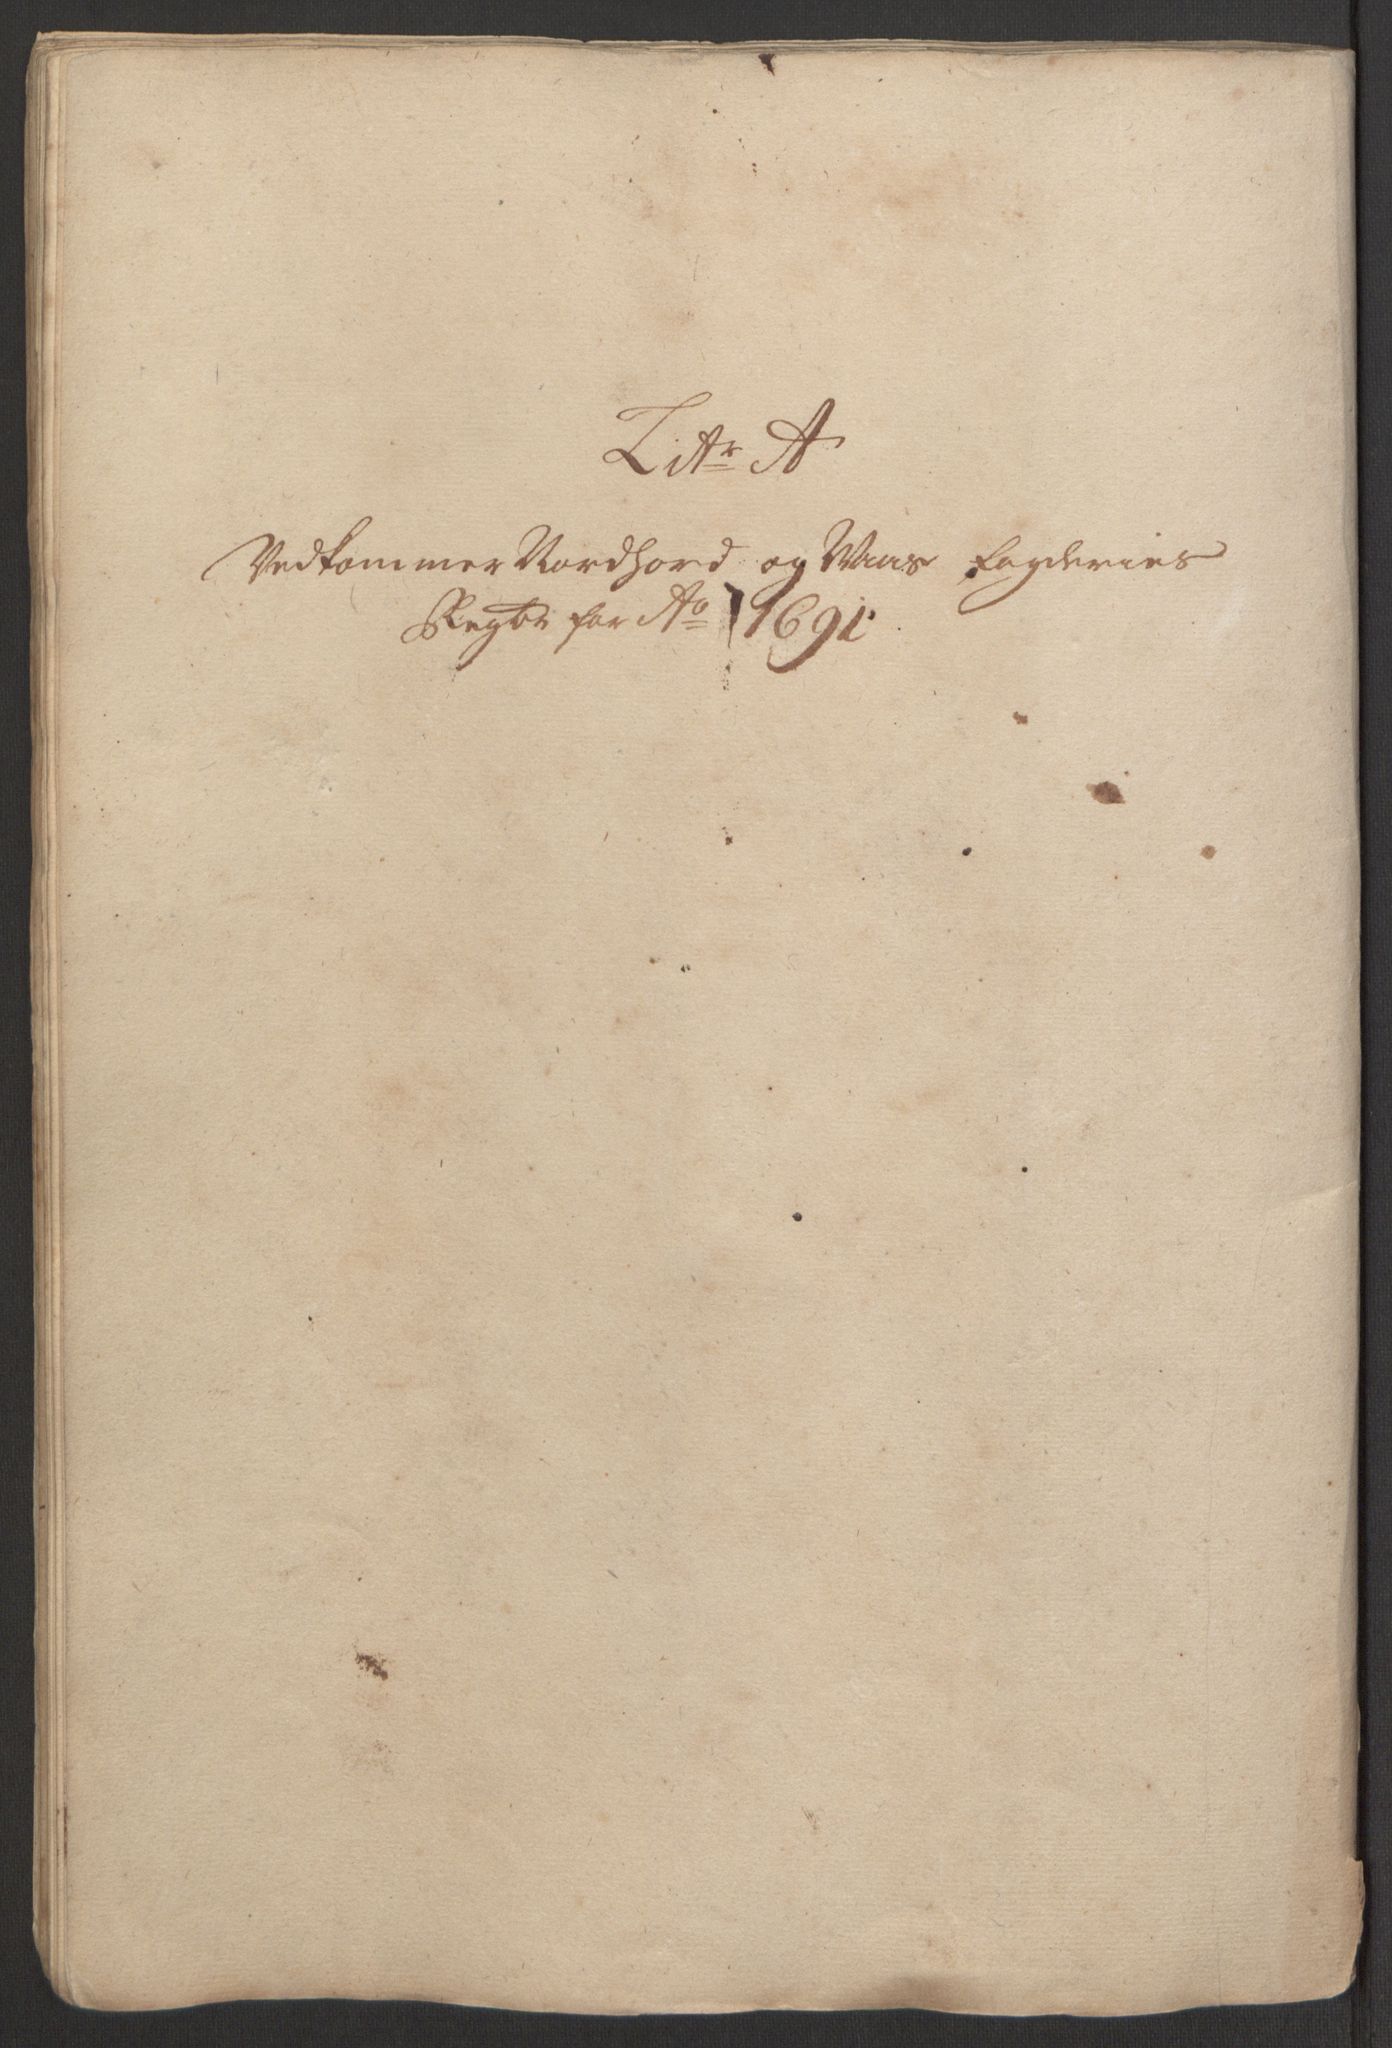 Litr A
Vedkommer Nordhord og Waas fogderies
Regtb for Ao 1691